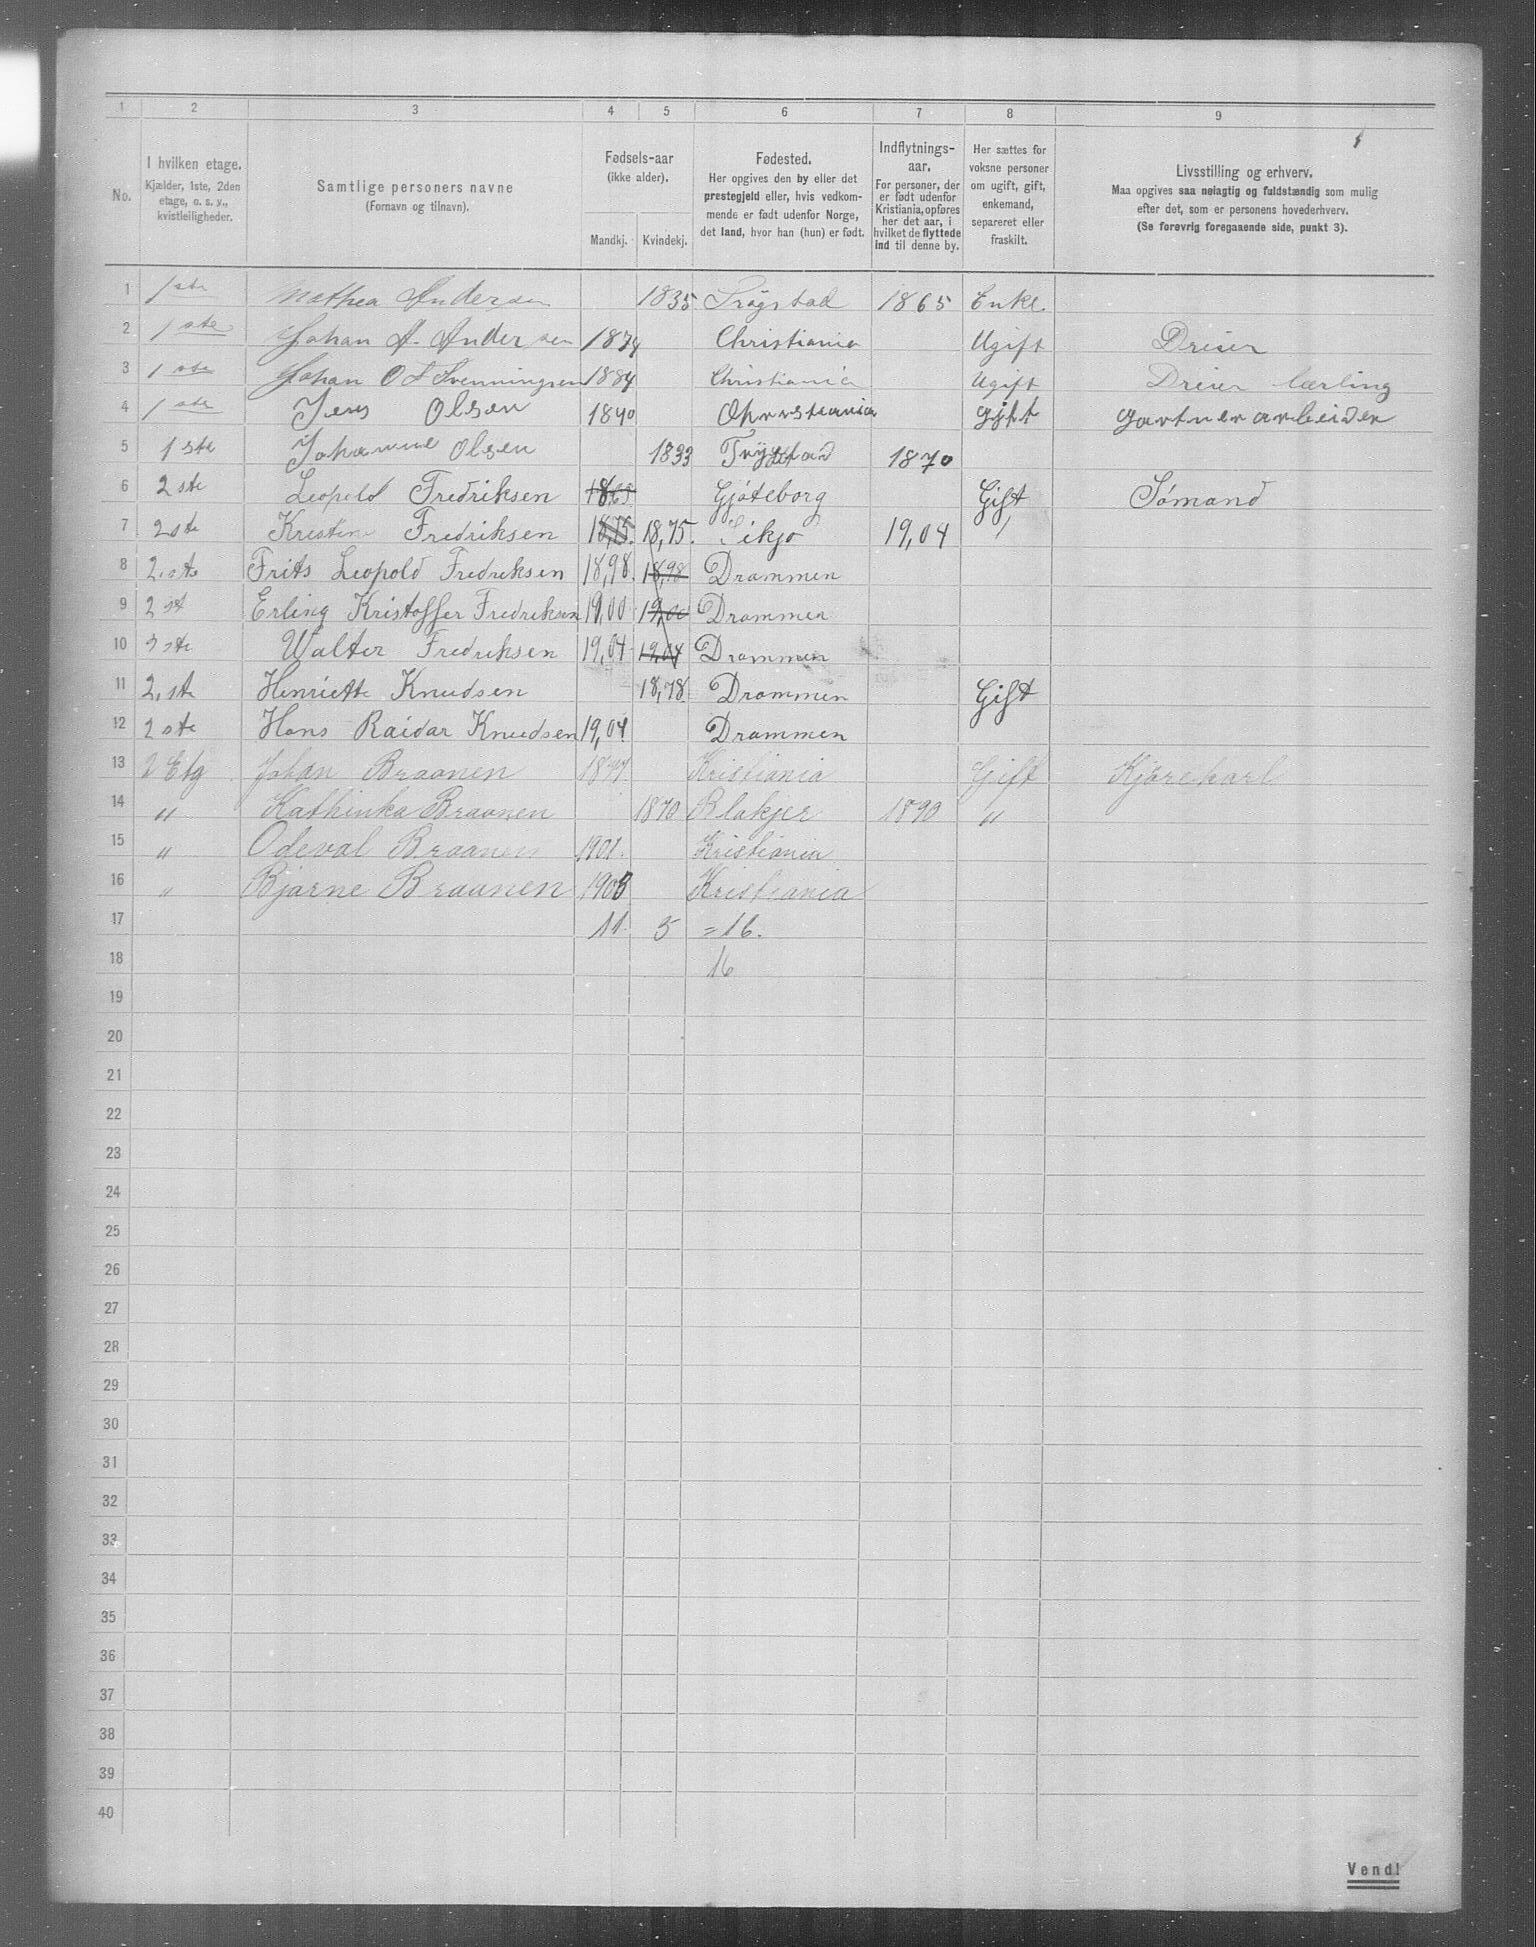 1 2 3 4 5 6 7 8 9
No.
I hvilken etage.
Kjælder, 1ste, 2den
etage, o. s. v.,
kvistleiligheder.
Samtlige personers navne
(Fornavn og tilnavn).
Fødsels-aar
(ikke alder).
Mandkj. Kvindekj.
Fødested.
Her opgives den by eller det
prestegjeld eller, hvis vedkom-
mende er født udenfor Norge,
det land, hvor han (hun) er født.
Indflytnings-
aar.
For personer, der
er født udenfor
Kristiania, opføres
her det aar, i
hvilket de flyttede
ind til denne by.
Her sættes for
voksne personer
om ugift, gift,
enkemand,
separeret eller
fraskilt.
Livsstilling og erhverv.
Maa opgives saa nøiagtig og fuldstændig som mulig
efter det, som er personens hovederhverv.
(Se forøvrig foregaaende side, punkt 3).
1 1ste Mathea Andersen 1835 Trøgstad 1865 Enke.
2 1ste Johan A. Andersen 1874 Christiania Ugift Dreier
3 1ste Johan O L Svenningsen 1884 Christiania Ugift Dreier lærling
4 1ste Jens Olsen 1840 Christiania gift gartnerarbeider
5 1ste Johanne Olsen 1833 1870
6 2ste Leopold Fredriksen 1865 Gjøteborg Gift Sømand
7 2ste Kristine Fredriksen 1875. 18,75. 19,04
8 2.ste Frits Leopold Fredriksen 18,98. 18,98 Drammen
9 2 st Erling Kristoffer Fredriksen 19,00 19,00 Drammen
10 2ste Walter Fredriksen 19,04 19,04 Drammen
11 2.ste Henriette Knudsen 18,78. Drammen Gift
12 2ste Hans Raidar Knudsen 19,04 Drammen
13 2 Etg Johan Braanen Kristiania Gift Kjørekarl
14 " Kathinka Braanen 1870 Blakjer 1890 "
15 " Odeval Braanen 1901. Kristiania
16 " Bjarne Braanen 1903 Kristiania
17 11. 5 = 16.
18 16
19
20
21
22
23
24
25
26
27
28
29
30
31
32
33
34
35
36
37
38
39
40
Vend!